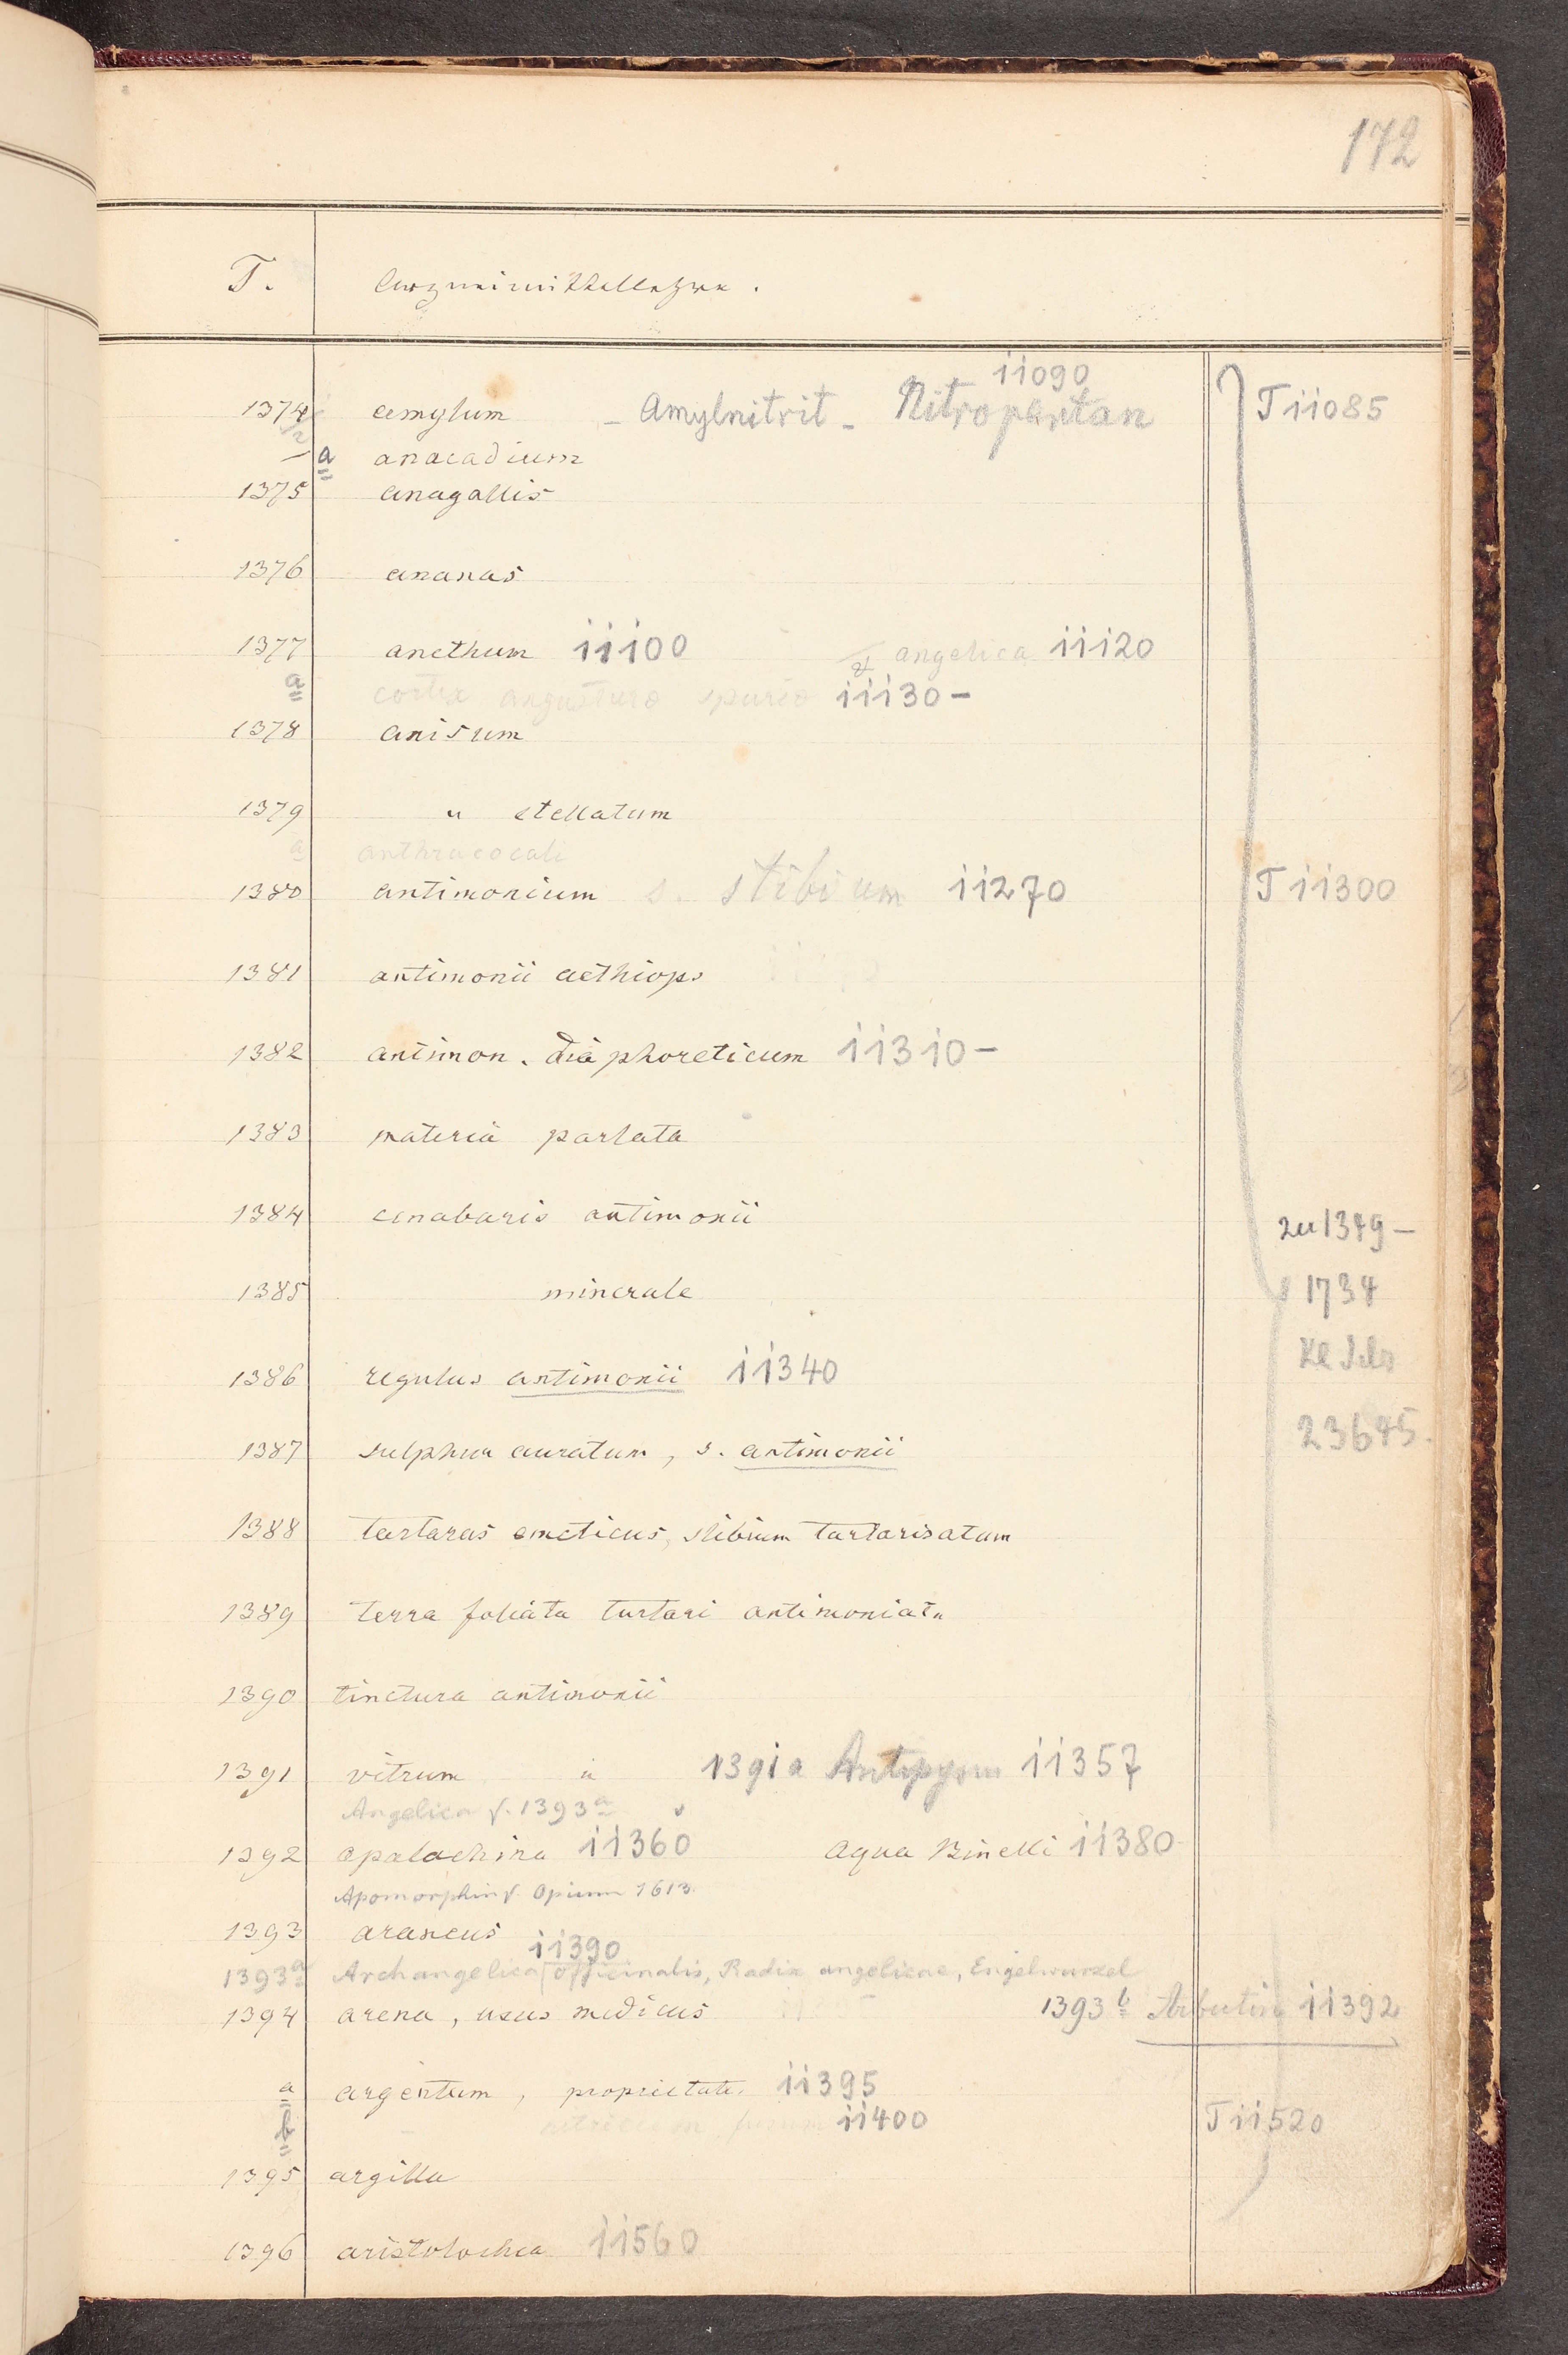 172
T. Arzneimittellehre.
11090
1374 amylum - Amylnitrit - Nitropentan T 11085
a anacadium
1375 anagallis
1376 ananas
1377 anethum 11100 angelica 11120
a cortex angusturae spuriae 11130 -
1378 anisum
1379 " stellatum
a anthracocali
1380 antimonium s. stibium 11270 T 11300
1381 antimonii aethiops
1382 antimon. diaphoreticum 11310 -
1383 materia perlata
1384 cinabaris antimonii zu 1349 -
1385 minerale 1734
1386 regulus antimonii 11340
1387 sulphur auratum, s. antimonii 23645.
1388 tartarus emeticus, stibium tartarisatum
1389 terra foliata tartari antimoniata
1390 tinctura antimonii
1391 vitrum " 1391a Antipyrin 11357
Angelica v. 1393a
1392 apalachina 11360 aqua Binelli 11380
Apomorphin v. Opium 1613.
1393 araneus 11390
1393a Archangelica officinalis, Radix angelicae, Engelwurzel
1394 arena, usus medicus 1393b Arbutin 11392
a argentum, proprietates 11395
b nitricum fusum 11400 T 11520
1395 argilla
1396 aristolochia 11560